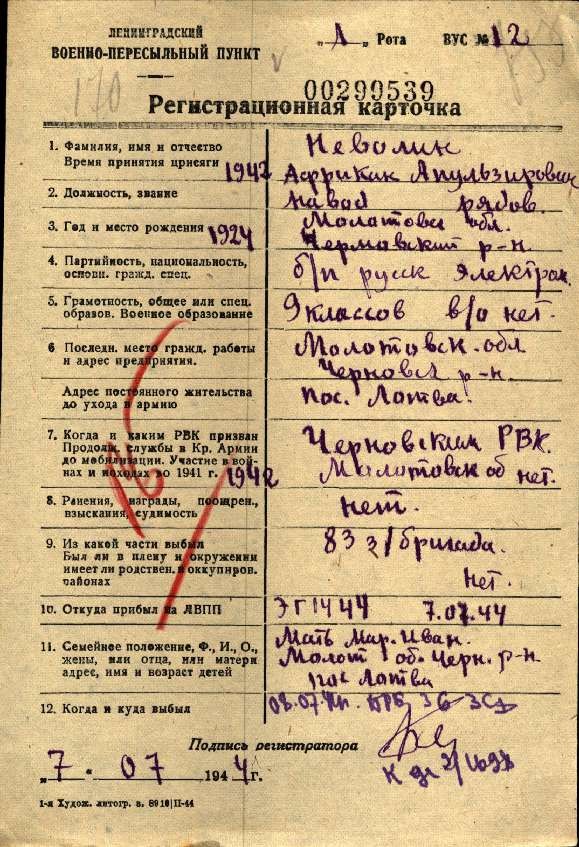 ЛЕНИНГРАДСКИЙ
ВОЕННО-ПЕРЕСЫЛЬНЫЙ ПУНКТ
„Л„ Рота ВУС № 12
170
00299539
Регистрационная карточка
1. Фамилия, имя и отчество Неволин
Время принятия присяги 1942 Африкан
2. Должность, звание рядов.
3. Год и место рождения 1924 Молотовск обл.
Черновский р-н.
4. Партийность, национальность,
основн. гражд. спец. б/п русск электром.
5. Грамотность, общее или спец.
образов. Военное образование 9 классов в/о нет.
6 Последн. место гражд. работы Молотовск. обл
и адрес предприятия. Черновск р-н.
Адрес постоянного жительства
до ухода в армию пос. Лотва.
7. Когда и каким РВК призван Черновским РВК.
Продолж. службы в Кр. Армии Молотовск об нет.
до мобилизации. Участие в вой-
нах и походах до 1941 г. 1942
8. Ранения, награды, поощрен.,
взыскания, судимость нет.
9. Из какой части выбыл 83 з/бригада.
Был ли в плену и окружении
имеет ли родствен. в оккупиров.
районах нет.
10. Откуда прибыл на ЛВПП ЭГ1444 7.07.44
11. Семейное положение, Ф., И., О., Мать Мар. Иван.
жены, или отца, или матери Молот об. Черн. р-н
адрес, имя и возраст детей пос Лотва
12. Когда и куда выбыл 36 ЗСД
Подпись регистратора
„7" 07 1944 г.
1-я Худож. литогр. з. 8918|II-44